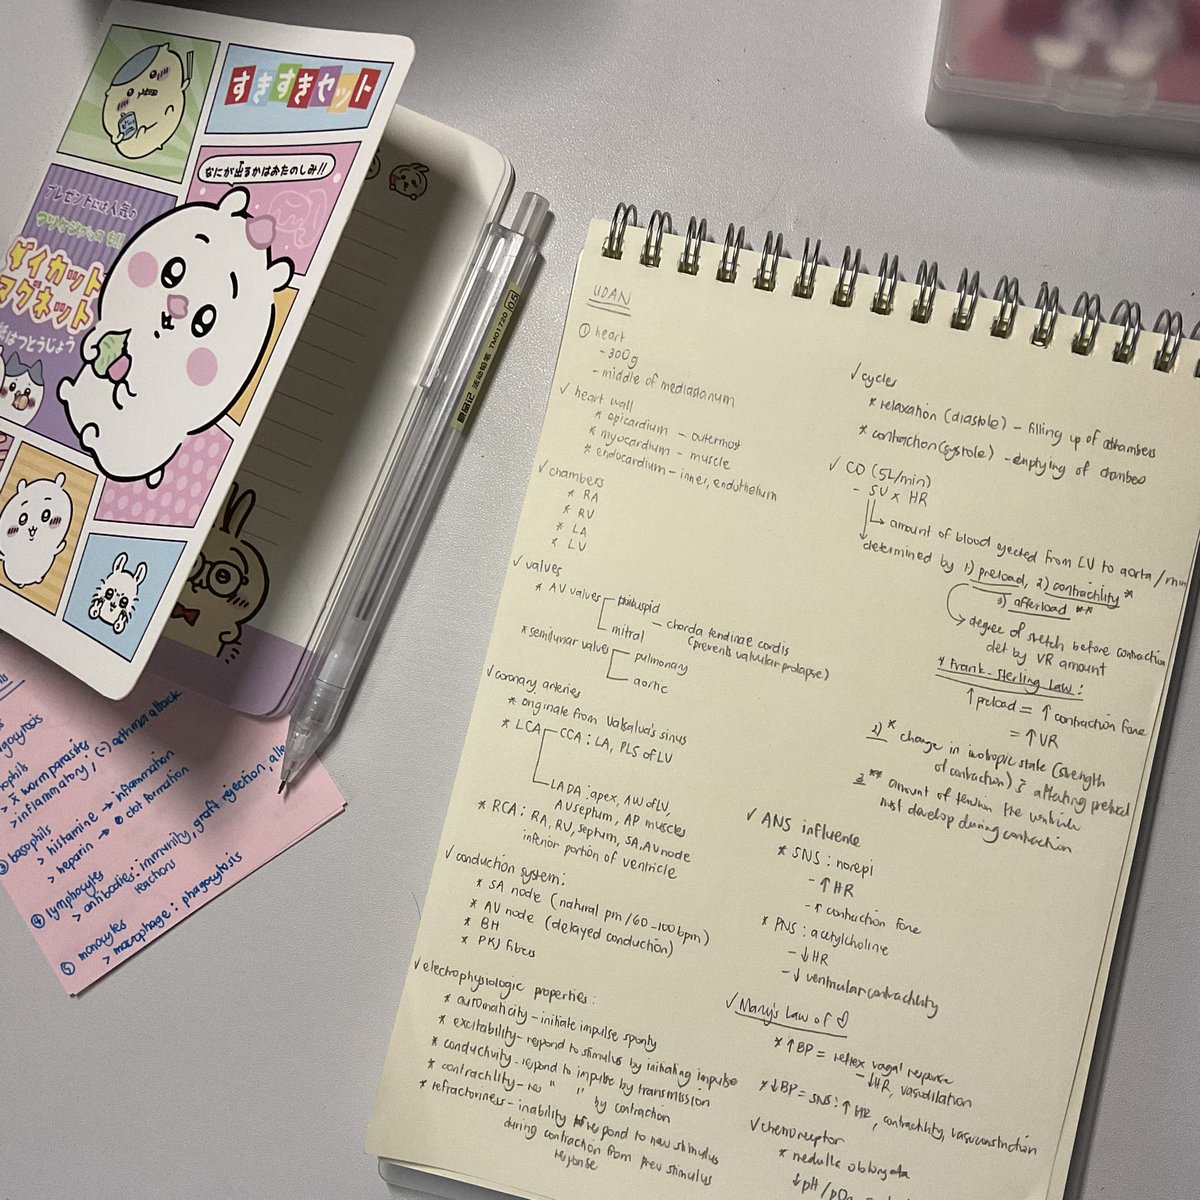 すきすきセット
なにが出るかはおたのしみ!!
プレゼントには人気の
ダイカット
マグネット
紙はつとうじょう
0.5
TMD1720
活动铅笔
UDAN
① heart
- 300g
- middle of mediastanum
✓ heart wall
* epicardium - outermost
* myocardium - muscle
* endocardium - inner, endothelium
✓ chambers
* RA
* RV
* LA
* LV
✓ valves
* AV valves
mitral
- chorda tendinae cordis
(prevents valvular prolapse)
* semilunar valves
pulmonary
aortic
✓ coronary arteries
* originate from Valsalva's sinus
* LCA
CCA : LA, PLS of LV
LADA : apex, AW of LV,
AV septum, AP muscles
* RCA : RA, RV, septum, SA, AV node
inferior portion of ventricle
✓ conduction system:
* SA node (natural pm / 60-100 bpm)
* AV node (delayed conduction)
* BH
* PKJ fibers
✓ electrophysiologic properties:
* automaticity - initiate impulse sponty
* excitability - respond to stimulus by initiating impulse
* conductivity - respond to impulse by transmission
* contractility - res " " by contraction
* refractoriness - inability to respond to new stimulus
during contraction from prev stimulus
response
✓ cycles
* relaxation (diastole) - filling up of chambers
* contraction (systole) - emptying of chambers
✓ CO (5L/min)
- SV x HR
→ amount of blood ejected from LV to aorta / min
determined by 1) preload, 2) contractility *
3) afterload **
→ degree of stretch before contraction
det by VR amount
* Frank-Sterling Law:
↑ preload = ↑ contraction force
= ↑ VR
2) * change in inotropic state (strength
of contraction) affecting preload
3 ** amount of tension the ventricle
must develop during contraction
✓ ANS influence
* SNS : norepi
- ↑ HR
- ↑ contraction force
* PNS : acetylcholine
- ↓ HR
- ↓ ventricular contractility
✓ Marey's Law of
* ↑ BP = reflex vagal response
- ↓ HR, vasodilation
* ↓ BP = SNS : ↑ HR, contractility, vasoconstriction
✓ chemoreceptor
* medulla oblongata
↓ pH /
> worm parasites
> inflammatory ; (-) asthma attack
③ basophils
> histamine → inflammation
> heparin → clot formation
④ lymphocytes
> antibodies : immunity, graft rejection,
reactions
⑤ monocytes
> macrophage : phagocytosis